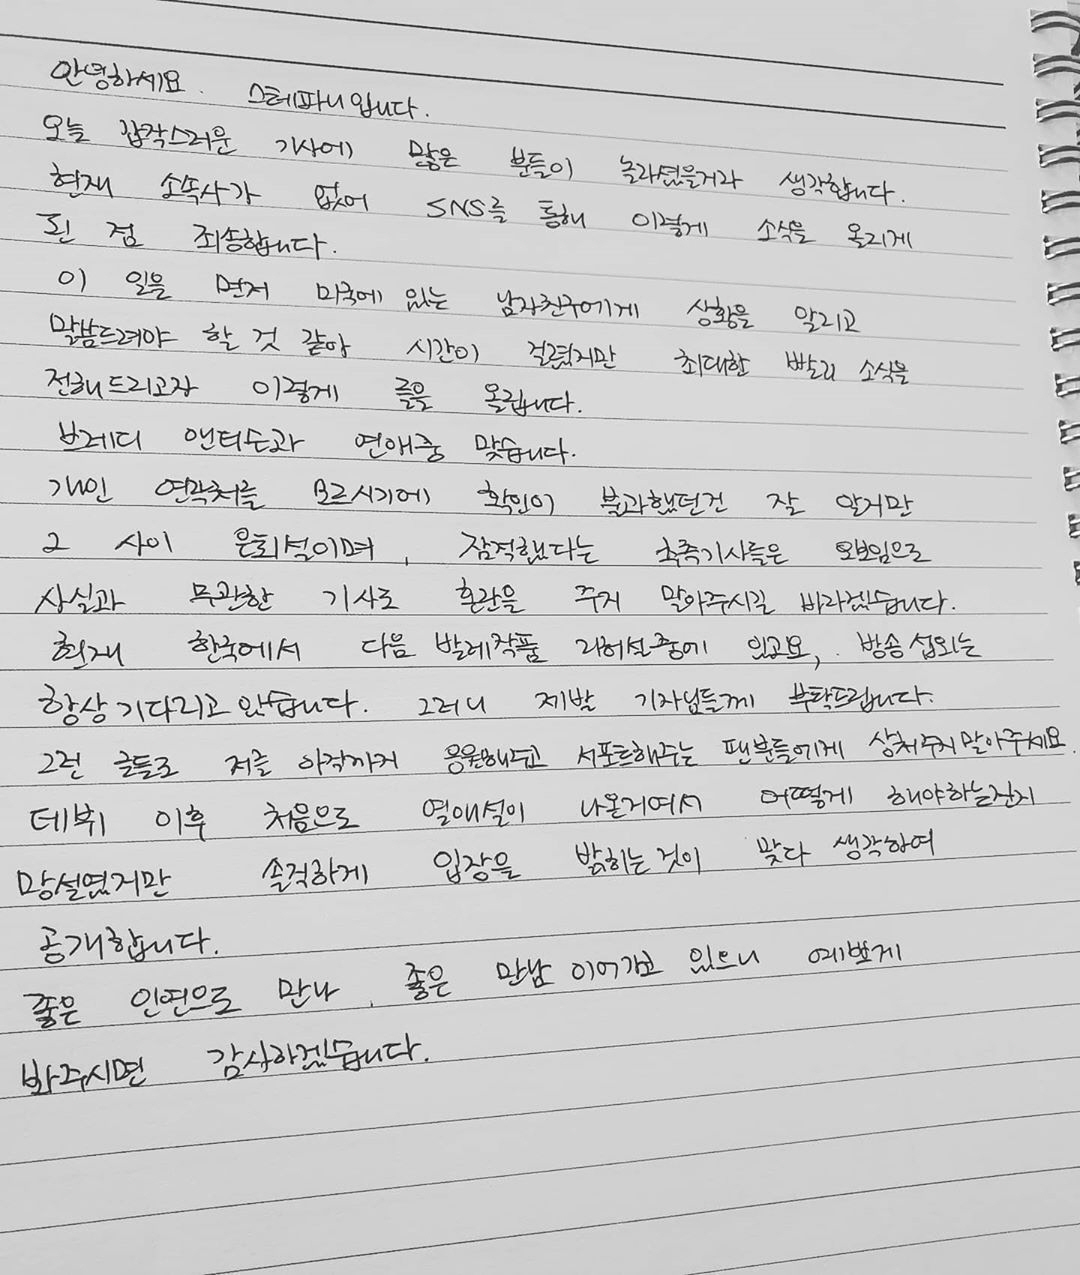 안녕하세요. 스테파니입니다.
오늘 갑작스러운 기사에 많은 분들이 놀라셨을거라 생각합니다.
현재 소속사가 없어 SNS를 통해 이렇게 소식을 올리게
된 점 죄송합니다.
이 일을 먼저 미국에 있는 남자친구에게 상황을 알리고
말씀드려야 할 것 같아 시간이 걸렸지만 최대한 빨리 소식을
전해드리고자 이렇게 글을 올립니다.
브레디 앤더슨과 연애중 맞습니다.
개인 연락처를 모르시기에 확인이 불과했던건 잘 알지만
그 사이 은퇴설이며, 잠적했다는 추측기사들은 오보임으로
사실과 무관한 기사로 혼란을 주지 말아주시길 바라겠습니다.
현재 한국에서 다음 발레작품 리허설중에 있고요, 방송 섭외는
항상 기다리고 있습니다. 그러니 제발 기자님들께 부탁드립니다.
그런 글들로 저를 아직까지 응원해주고 서포트해주는 팬분들에게 상처주지말아주세요.
데뷔 이후 처음으로 열애설이 나온거여서 어떻게 해야하는건지
망설였지만 솔직하게 입장을 밝히는것이 맞다 생각하여
공개합니다.
좋은 인연으로 만나, 좋은 만남 이어가고 있으니 예쁘게
봐주시면 감사하겠습니다.